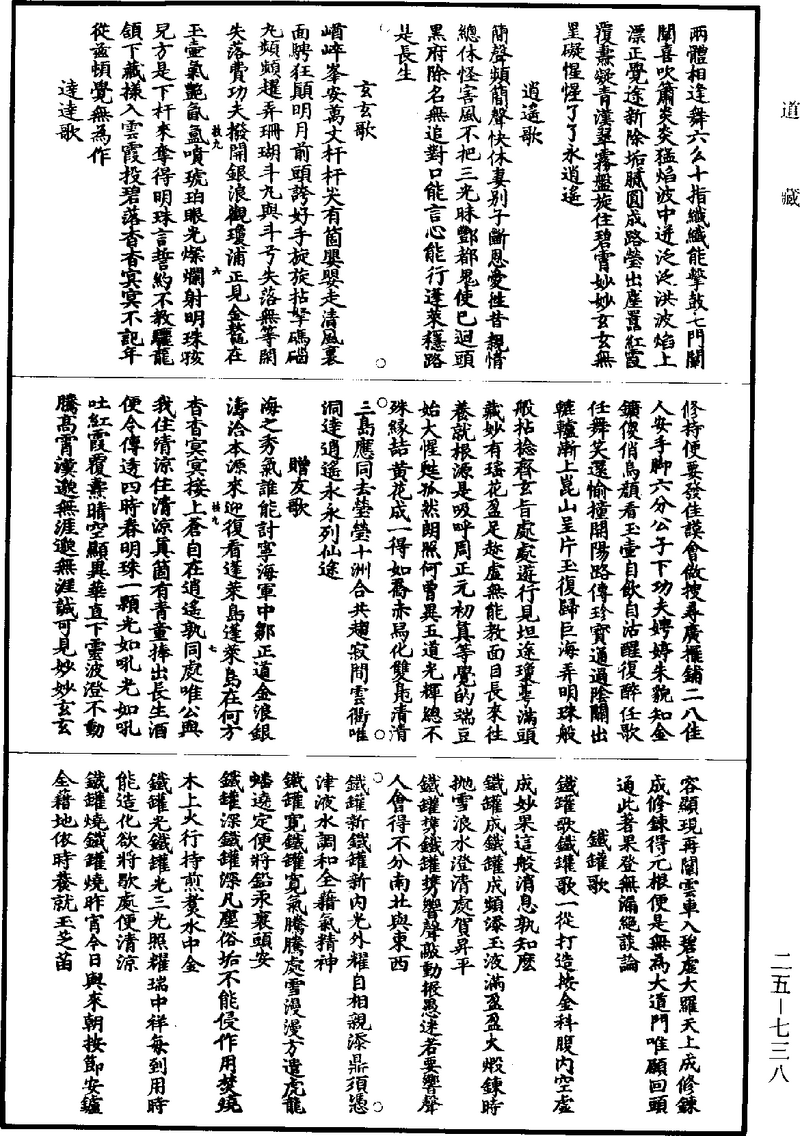 道藏
兩體相逢舞六么十指纖纖能擊鼓七門闌
闌喜吹簫炎炎猛焰波中迸泛泛洪波焰上
漂正覺途新除垢膩圓成路瑩出塵囂紅霞
覆燾凝青漢翠霧盤旋住碧霄妙妙玄玄無
罣礙惺惺了了永逍遙
逍遙歌
簡聲頻簡聲快休妻別子斷恩愛性昔親情
總休怪害風不把三光昧酆都鬼使已迴頭
黑府除名無追對口能言心能行蓬萊穩路
是長生
玄玄歌
崷崪峯安萬丈杆杆尖有箇嬰嬰走清風裏
面騁狂顛明月前頭誇好手旋旋拈挐碼碯
丸頻頻趯弄珊瑚斗丸與斗兮失落無等閑
失落費功夫撥開銀浪觀瓊浦正見金鼇在
玉壺氣艷氤氳噴琥珀眼光燦爛射明珠孩
兒方是下杆來奪得明珠言誓約不教驪龍
頷下藏攃入雲霞投碧落杳杳冥冥不記年
從茲頓覺無為作
達達歌
修持便要發佳謨會做搜尋廣擺鋪二八佳
人安手脚六分公子下功夫娉婷朱貌知金
鑛俊俏烏顏看玉壺自飲自沽醒復醉任歌
任舞笑還愉撞開陽路傳珍寶通過陰關出
轆轤漸上崑山呈片玉復歸巨海弄明珠般
般拈捻齊玄旨處處遊行見坦途瓊蘂滿頭
藏妙有瑤花盈足趂虛無能教面目長來往
養就根源是吸呼周正元初真等覺的端豆
始大惺甦孤然朗照何曾異五道光輝總不
殊緣詰黃花成一得如屬赤舄化雙鳧清清
三島應同去瑩瑩十洲合共趨寂間雲衢唯
洞達逍遙永永列仙途
贈友歌
海之秀氣誰能計寧海軍中鄒正道金浪銀
濤洽本源來迎復看蓬萊島蓬萊島在何方
杳杳冥冥接上蒼自在逍遙孰同處唯公與
我住清涼住清涼真箇有青童捧出長生酒
便令傳透四時春明珠一顆光如吼光如吼
吐紅霞覆燾晴空顯異華直下雲波澄不動
騰高霄漢邈無涯邈無涯誠可見妙妙玄玄
容顯現再闡雲車入碧虛大羅天上成修鍊
成修鍊得元根便是無為大道門唯願回頭
通此著果登無漏絕談論
鐵罐歌
鐵罐歌鐵罐歌一從打造按金科腹內空虛
成妙果這般消息孰知麼
鐵罐成鐵罐成頻添玉液滿盈盈大煅鍊時
拋雪浪水澄清處賀昇平
鐵罐攜鐵罐攜響聲敲動振愚迷若要響聲
人會得不分南北與東西
鐵罐新鐵罐新內光外耀自相親添鼎須憑
津液水調和全藉氣精神
鐵罐寬鐵罐寬氣騰騰處雪漫漫方遣虎龍
蟠遶定便將鉛汞裏頭安
鐵罐深鐵罐深凡塵俗垢不能侵作用焚燒
木上火行持煎煑水中金
鐵罐光鐵罐光三光照耀瑞中祥每到用時
能造化欲將歇處便清涼
鐵罐燒鐵罐燒昨宵今日與來朝按節安爐
全藉地依時養就玉芝苗
二五—七三八